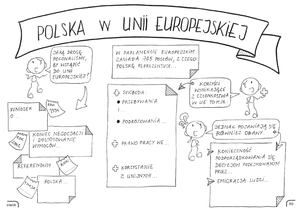 POLSKA W UNII EUROPEJSKIEJ
JAKĄ DROGĘ
POKONALIŚMY,
BY WSTĄPIĆ
DO UNII
EUROPEJSKIEJ?
W PARLAMENCIE EUROPEJSKIM
ZASIADA 705 POSŁÓW, Z CZEGO
POLSKĘ REPREZENTUJE...
KORZYŚCI
WYNIKAJĄCE
Z CZŁONKOSTWA
W UE TO M.IN.
WNIOSEK
O...
KONIEC NEGOCJACJI
I PRZYJMOWANIE
WYMOGÓW...
REFERENDUM
POLSKA...
+ SWOBODA
• PRZEBYWANIA
I...
• PODRÓŻOWANIA...
+ PRAWO PRACY WE...
+ KORZYSTANIE
Z UNIJNYCH...
JEDNAK POJAWIAJĄ SIĘ
RÓWNIEŻ OBAWY...
- KONIECZNOŚĆ
PODPORZĄDKOWANIA SIĘ
DECYZJOM PODEJMOWANYM
PRZEZ...
- EMIGRACJA LUDZI...